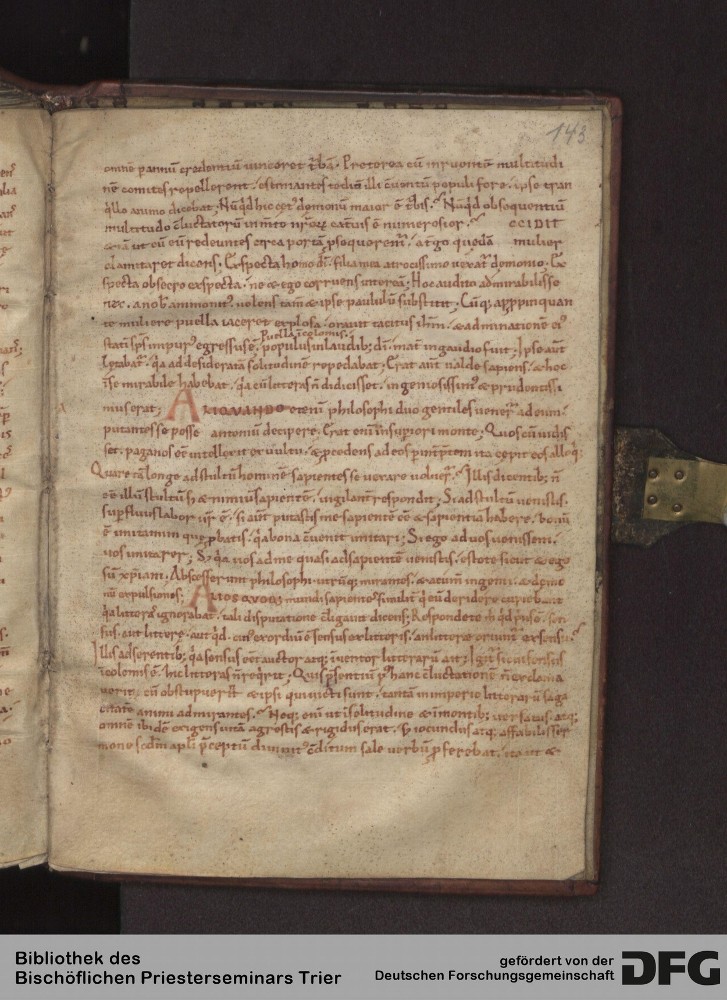 143
omnē pannū credentiū uinceret t̄bā. Pretorea cū inruentiū multitudi
nē comites repellerent. estimantes tediū illi cuentū populi fore. ipse tran
q̇llo animo dicebat; Nūq̇d hic cet' demonum maior ē t̄bis. Nūq̇d obsequentiū
multitudo c̄luctatorū in m̄to nr̄oꝝ cat̄uis ē numerosior. CCIDIT
&iā ut eū redeuntes circa portā p̄sequerem̄. a t̄go quedā mulier
clamitaret dicens; Exspecta homo dī. filia mea atrocissimo uexat̄ demonio. Ex
specta obsecro exspecta. ne & ego corruens interea; Hoc audito admirabilis se
nex. a nob̄ ammonit'. uolens tam̄ & ipse paululū substitit; Cūq; appinquan
te muliere puella iaceret explosa. orauit tacitus ih̄m. & adminatione ei'
Puella īcolomis;
statī sp̄s impur' egressus ē. populus in laudib; dī. mat̄ in gaudio fuit; Ipse aut̄
letabat̄. q̇a ad desideratā solitudinem repedabat; Erat aut̄ ualde sapiens. & hoc
īse mirabile habebat. q̇a cū litteras n̄ didicisset. ingeniosissim' & prudentissi
mus erat; ALIQVANDO etenī philosophi duo gentiles uener̄ ad eum.
putantes se posse antonium decipere. Erat enī in supiori monte; Quos cū uidis
set. paganos eē intellexit ex uultu. & p̄cedens ad eos p̄ int̄ptem ita cepit eos alloq̇;
Quare tā longe ad stultū hominē sapientes se uexare uoluer̄. Illis dicentib; n̄
eē illū stultū s; & nimiū sapientē. uigilant̄ respondit; Si ad stultū uenistis.
supfluus labor ur̄ ē. si aut̄ putastis me sapientē eē & sapientiā habere. bonū
ē imitamini que p̄batis. q̇a bona c̄uenit imitari; Si ego ad uos uenissem.
uos imitarer; S; q̇a uos ad me quasi ad sapientē uenistis. estote sicut & ego
sū xp̄iani. Abscesserunt philosophi utrūq; mirantes. & acumī ingenii. & demo
nū expulsiones; ALIOS QVOQ; mundi sapientes similit̄ q̇ eū deridere cupiebant
q̇a litteras ignorabat. tali disputatione c̄ligauit dicens; Respondete m̄ q̇d p̄us ē. sen
sus. aut littere. aut q̇d. cui' exordiū ē sensus ex litteris. an littere oriunt̄ ex sensu.
Illis adserentib; q̇a sensus eēt auctor atq; īuentor litterarū ait; Igit̄ si cui sensus
īcolomis ē. hic litteras n̄ req̇rit; Quis p̄sentiū p̄ hanc c̄luctationē n̄ exclama
uerit. cū obstupuer̄t & ipsi qui uicti sunt. tantā in imperio litterarū saga
citatē animi admirantes. Neq; enī ut ī solitudine & ī montib; uersatus. atq;
omnē ibidē exigens uitā agrestis & rigidus erat. s; iocundus atq; affabilis ser
monē scd̄m apli p̄ceptū diuinit' c̄ditum sale uerbū p̄ferebat. ita ut &
Bibliothek des
Bischöflichen Priesterseminars Trier
gefördert von der
Deutschen Forschungsgemeinschaft
DFG